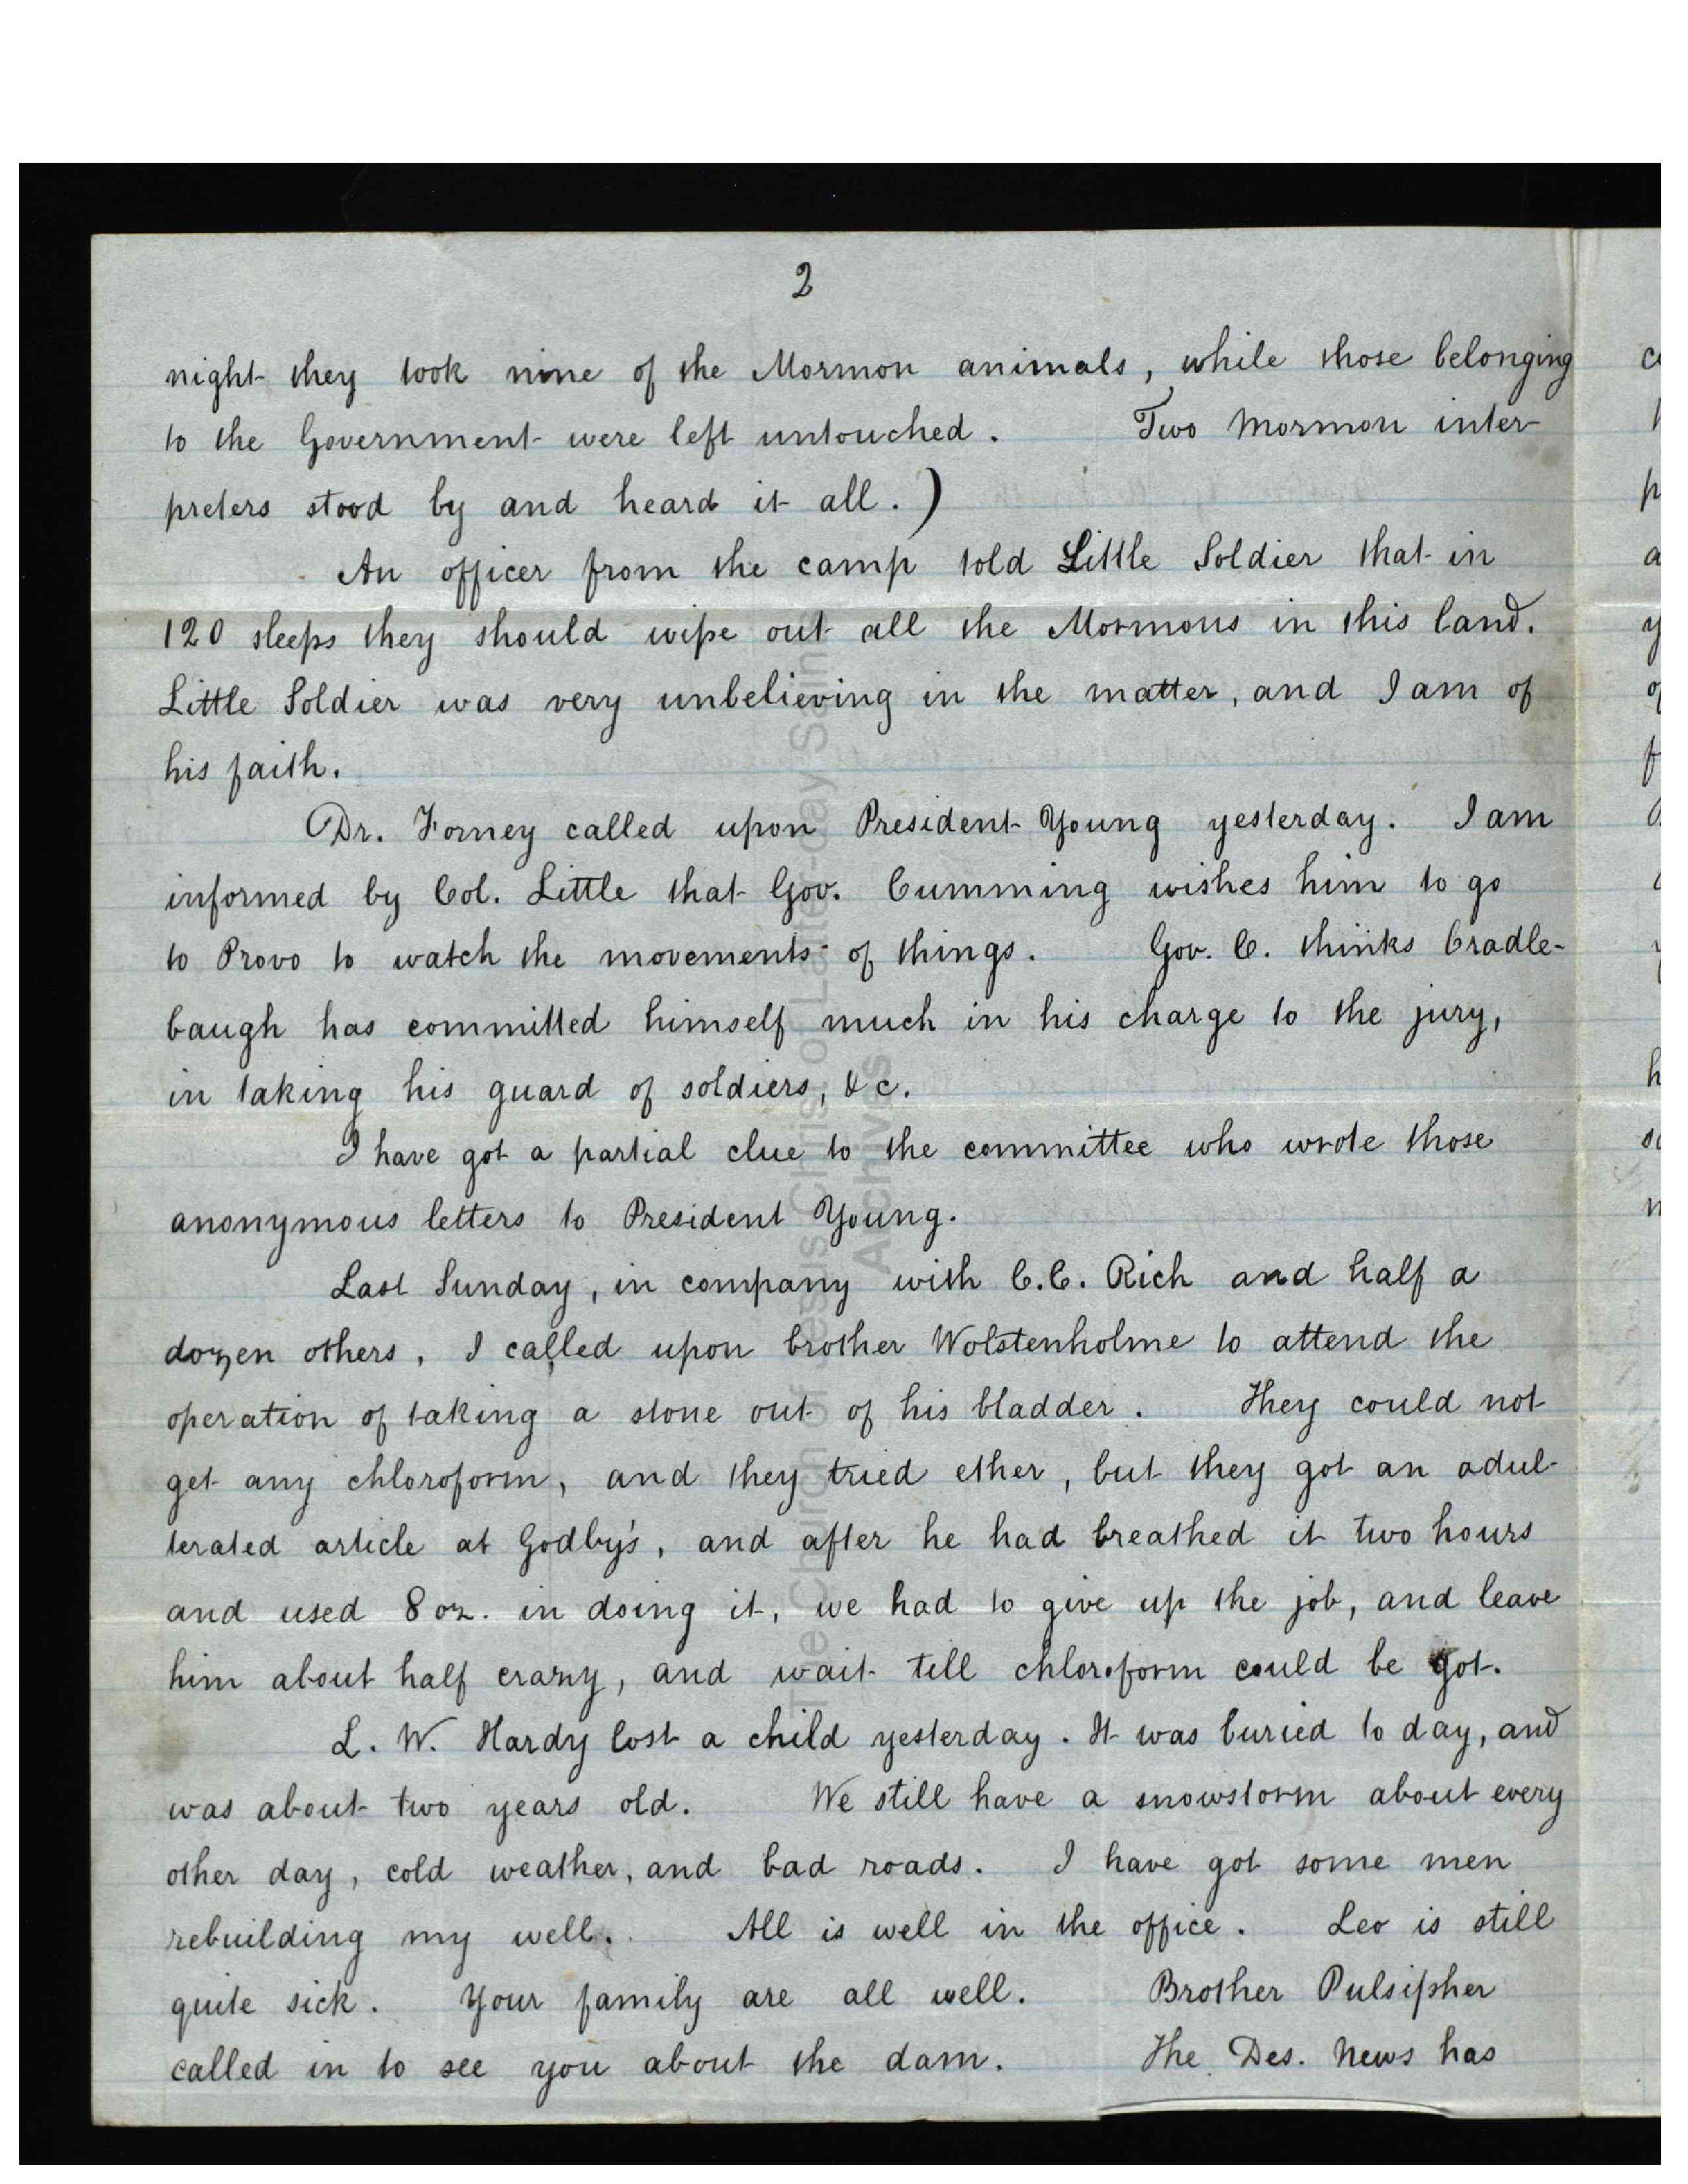 2
night they took nine of the Mormon animals, while those belonging
to the Government were left untouched. Two Mormon inter-
preters stood by and heard it all.)
An officer from the camp told Little Soldier that in
120 sleeps they should wipe out all the Mormons in this land.
Little Soldier was very unbelieving in the matter, and I am of
his faith.
Dr. Forney called upon President Young yesterday. I am
informed by Col. Little that Gov. Cumming wishes him to go
to Provo to watch the movements of things. Gov. C. thinks Cradle-
baugh has committed himself much in his charge to the jury,
in taking his guard of soldiers, &c.
I have got a partial clue to the committee who wrote those
anonymous letters to President Young.
Last Sunday, in company with C.C. Rich and half a
dozen others, I called upon brother Wolstenholme to attend the
operation of taking a stone out of his bladder. They could not
get any chloroform, and they tried ether, but they got an adul-
terated article at Godby's, and after he had breathed it two hours
and used 8 oz. in doing it, we had to give up the job, and leave
him about half crazy, and wait till chloroform could be got.
L. W. Hardy lost a child yesterday. It was buried to day, and
was about two years old. We still have a snowstorm about every
other day, cold weather, and bad roads. I have got some men
rebuilding my well. All is well in the office. Leo is still
quite sick. Your family are all well. Brother Pulsipher
called in to see you about the dam. The Des. News has
The Church of Jesus Christ of Latter-day Saints
Archives